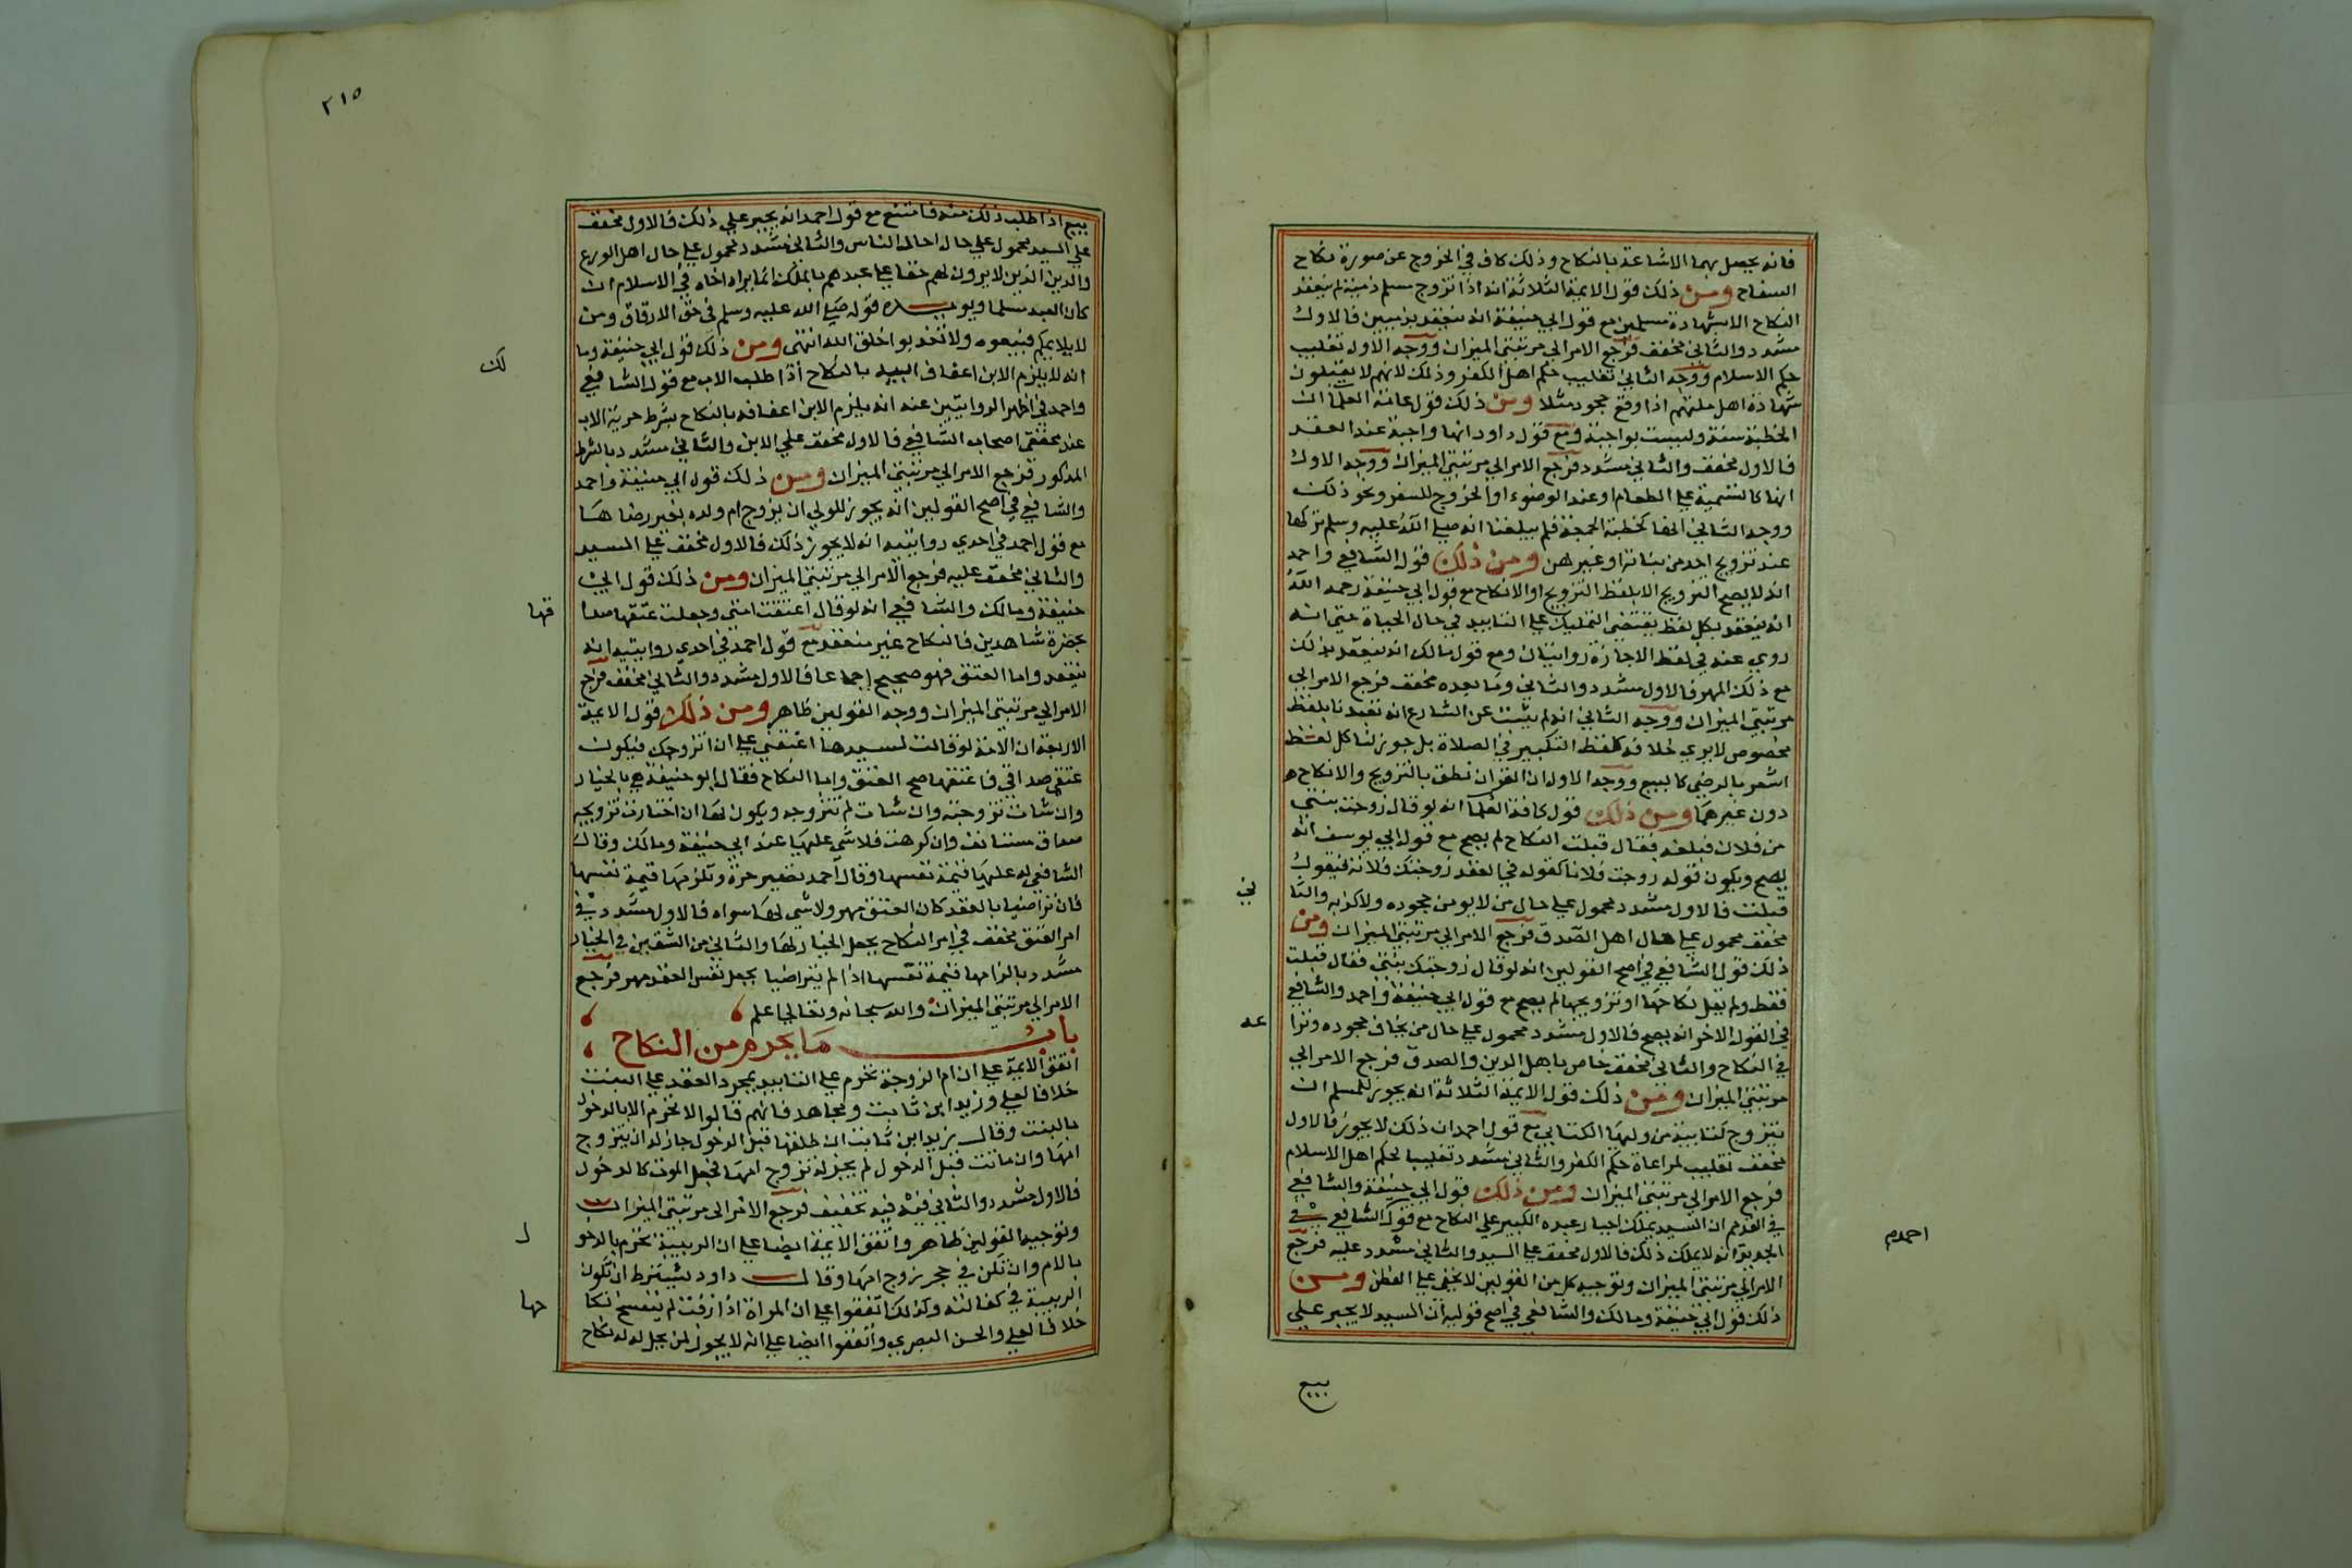 فانه يحصل بهما الاشاعة بالنكاح وذلك كاف في الخروج عن صورة نكاح
السفاح ومن ذلك قول الايمة الثلاثة انه اذا تزوج مسلم ذمية لم ينعقد
النكاح الا بشهادة مسلمين مع قول ابي حنيفة انه ينعقد بذميين فالاول
مشدد والثاني مخفف فرجع الامر الي مرتبتي الميزان ووجه الاول تغليب
حكم الاسلام ووجه الثاني تغليب حكم اهل الكفر وذلك لانهم لا يقبلون
شهادة اهل ملتهم اذا وقع جحود مثلا ومن ذلك قول عامة العلما ان
الخطبة سنة وليست بواجبة ومع قول داود انها واجبة عند العقد
فالاول مخفف والثاني مشدد فرجع الامر الي مرتبتي الميزان ووجه الاول
انها كالتسمية علي الطعام او عند الوضوء او الخروج للسفر ونحو ذلك
ووجه الثاني انها كخطبة الجمعة فلم يبلغنا انه صلي الله عليه وسلم تركها
عند تزويج احد من بناته او غيرهن ومن ذلك قول الشافعي واحمد
انه لا يصح التزويج الا بلفظ التزويج او الانكاح مع قول ابي حنيفة رحمه الله
انه ينعقد بكل لفظ يقتضي التمليك علي التابيد في حال الحياة حتي انه
روي عنه في لفظ الاجازة روايتان ومع قول مالك انه ينعقد بذلك
مع ذلك المهر فالاول مشدد والثاني وما بعده مخفف فرجع الامر الي
مرتبتي الميزان ووجه الثاني انه لم يثبت عن الشارع انه تعبدنا بلفظ
مخصوص لا يري خلافه كلفظ التكبير في الصلاة بل جوز لنا كل لفظ
اشعر بالرضي كالبيع ووجه الاول ان القران نطق بالتزويج والانكاح
دون غيرهما ومن ذلك قول كافة العلما انه لو قال زوجت بنتي
من فلان فبلغه فقال قبلت النكاح لم يصح مع قول ابي يوسف انه
يصح ويكون قوله زوجت فلانا كقوله في العقد زوجتك فلانة فيقول
قبلت فالاول مشدد محمول علي حال من لا يومن جحوده ولا كذبه والثا
ني
مخفف محمول علي حال اهل الصدق فرجع الامر الي مرتبتي الميزان ومن
ذلك قول الشافعي في اصح القولين انه لو قال زوجتك بنتي فقال قبلت
فقط ولم يقل نكاحها او تزويجها لم يصح مع قول ابي حنيفة واحمد والشافعي
في القول الاخر انه يصح فالاول مشدد محمول علي حال من يخاف جحوده ونزا
عه
في النكاح والثاني مخفف خاص باهل الدين والصدق فرجع الامر الي
مرتبتي الميزان ومن ذلك قول الايمة الثلاثة انه يجوز للمسلم ان
يتزوج كتابية من وليها الكتابي مع قول احمد ان ذلك لا يجوز فالاول
مخفف تغليب لمراعاة حكم الكفر والثاني مشدد تغليبا لحكم اهل الاسلام
فرجع الامر الي مرتبتي الميزان ومن ذلك قول ابي حنيفة والشافعي
في القديم ان السيد يملك اجبار عبده الكبير علي النكاح مع قول الشافعي في
احمدم
الجديد انه لا يملك ذلك فالاول مخفف علي السيد والثاني مشدد عليه فرجع
الامر الي مرتبتي الميزان وتوجيه كل من القولين لا يخفي علي الفطن ومن
ذلك قول ابي حنيفة ومالك والشافعي في اصح قوليه ان السيد لا يجبر علي
بيع
٢١٥
بيع اذا طلب ذلك منه فامتنع مع قول احمد انه يجبر علي ذلك فالاول مخفف
علي السيد محمول علي حال احاد الناس والثاني مشدد محمول علي حال اهل الورع
والدين الذين لا يرون لهم حقا علي عبدهم بالملك انما يراه اخاه في الاسلام ان
كان العبد مسلما ويويده قوله صلي الله عليه وسلم في حق الارقاق ومن
لا يلايمكم فبيعوه ولا تعذبوا خلق الله انتهي ومن ذلك قول ابي حنيفة وما
لك
انه لا يلزم الابن اعفاف ابيه بالنكاح اذا طلب الاب مع قول الشافعي
واحمد في اظهر الروايتين عنه انه يلزم الابن اعفافه بالنكاح بشرط حرية الاب
عند محققي اصحاب الشافعي فالاول مخفف علي الابن والثاني مشدد بالشرط
المذكور فرجع الامر الي مرتبتي الميزان ومن ذلك قول ابي حنيفة واحمد
والشافعي في اصح القولين انه يجوز للولي ان يزوج ام ولده بغير رضاها
مع قول احمد في احدي روايتيه انه لا يجوز ذلك فالاول مخفف علي السيد
والثاني مخفف عليه فرجع الامر الي مرتبتي الميزان ومن ذلك قول ابي
حنيفة ومالك والشافعي انه لو قال اعتقت امتي وجعلت عتقها صدا
قها
بحضرة شاهدين فالنكاح غير منعقد مع قول احمد في احدي روايتيه انه
ينعقد واما العتق فهو صحيح اجماعا فالاول مشدد والثاني مخفف فرجع
الامر الي مرتبتي الميزان ووجه القولين ظاهر ومن ذلك قول الايمة
الاربعة ان الامة لو قالت لسيدها اعتقني علي ان اتزوجك فيكون
عتقي صداقي فاعتقها صح العتق واما النكاح فقال ابو حنيفة هي بالخيار
وان شات تزوجته وان شات لم تتزوجه ويكون لها ان اختارت تزويجه
صداق مستانف وان كرهت فلا شي عليها عند ابي حنيفة ومالك وقال
الشافعي له عليها قيمة نفسها وقال احمد تصير حرة وتلزمها قيمة نفسها
فان تراضيا بالعقد كان العتق مهر ولا شي لها سواه فالاول مشدد في
امر العتق مخفف في امر النكاح بجعل الخيار لها والثاني من الشقين في الخيار
مشدد بالزامها قيمة نفسها اذا لم يتراضيا بجعل نفس العقد مهر فرجع
الامر الي مرتبتي الميزان والله سبحانه وتعالي اعلم
باب ما يحرم من النكاح
اتفق الايمة علي ان ام الزوجة تحرم علي التابيد بمجرد العقد علي البنت
خلافا لعلي وزيد ابن ثابت ومجاهد فانهم قالوا لا تحرم الا بالدخول
بالبنت وقال زيد ابن ثابت ان طلقها قبل الدخول جاز له ان يتزوج
امها وان ماتت قبل الدخول لم يجز له تزوج امها فجعل الموت كالدخول
فالاول مشدد والثاني فيه تخفيف فرجع الامر الي مرتبتي الميزان
وتوجيه القولين ظاهر واتفق الايمة ايضا علي ان الربيبة تحرم بالدخو
ل
بالام وان تكن في حجر زوج امها وقال داود يشترط ان تكون
الربيبة في كفالته وكذلك اتفقوا علي ان المراة اذا زنت لم ينفسخ نكا
حها
خلافا لعلي والحسن البصري واتفقوا ايضا علي انه لا يجوز لمن يحل له نكاح